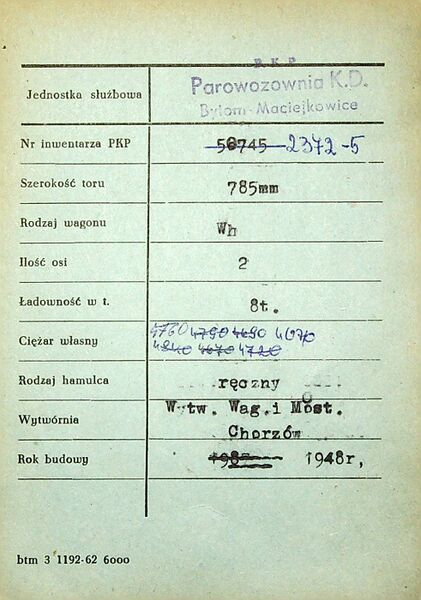 P K P
Parowozownia K.D.
Bytom-Maciejkowice
Jednostka służbowa
Nr inwentarza PKP 56745 2372-5
Szerokość toru 785mm
Rodzaj wagonu Wh
Ilość osi 2
Ładowność w t. 8t.
Ciężar własny 4760 4790 4690 4670
4840 4670 4720
Rodzaj hamulca ręczny
Wytwórnia Wytw. Wag.i Most.
Chorzów
Rok budowy 1948r,
btm 3 1192-62 6000